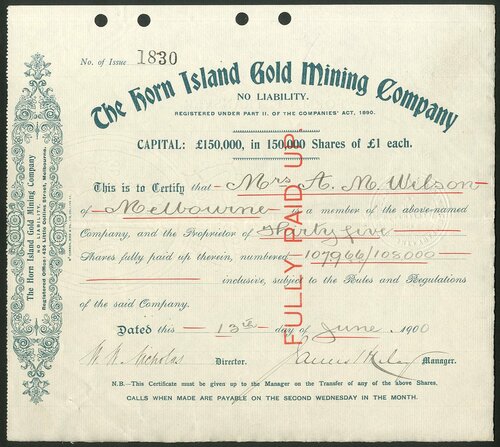 No. of Issue 1830
The Horn Island Gold Mining Company
NO LIABILITY.
REGISTERED UNDER PART II. OF THE COMPANIES' ACT, 1890.
CAPITAL: £150,000, in 150,000 Shares of £1 each.
This is to Certify that Mrs A. M. Wilson
of Melbourne is a member of the above-named
Company, and the Proprietor of Thirty five
Shares fully paid up therein, numbered 107966/108000
inclusive, subject to the Rules and Regulations
of the said Company.
Dated this 13th day of June 1900
W. H. Nicholas Director. Manager.
N.B.—This Certificate must be given up to the Manager on the Transfer of any of the above Shares.
CALLS WHEN MADE ARE PAYABLE ON THE SECOND WEDNESDAY IN THE MONTH.
FULLY PAID UP.
The Horn Island Gold Mining Company
NO LIABILITY.
Registered Office: 436 Little Collins Street, Melbourne.